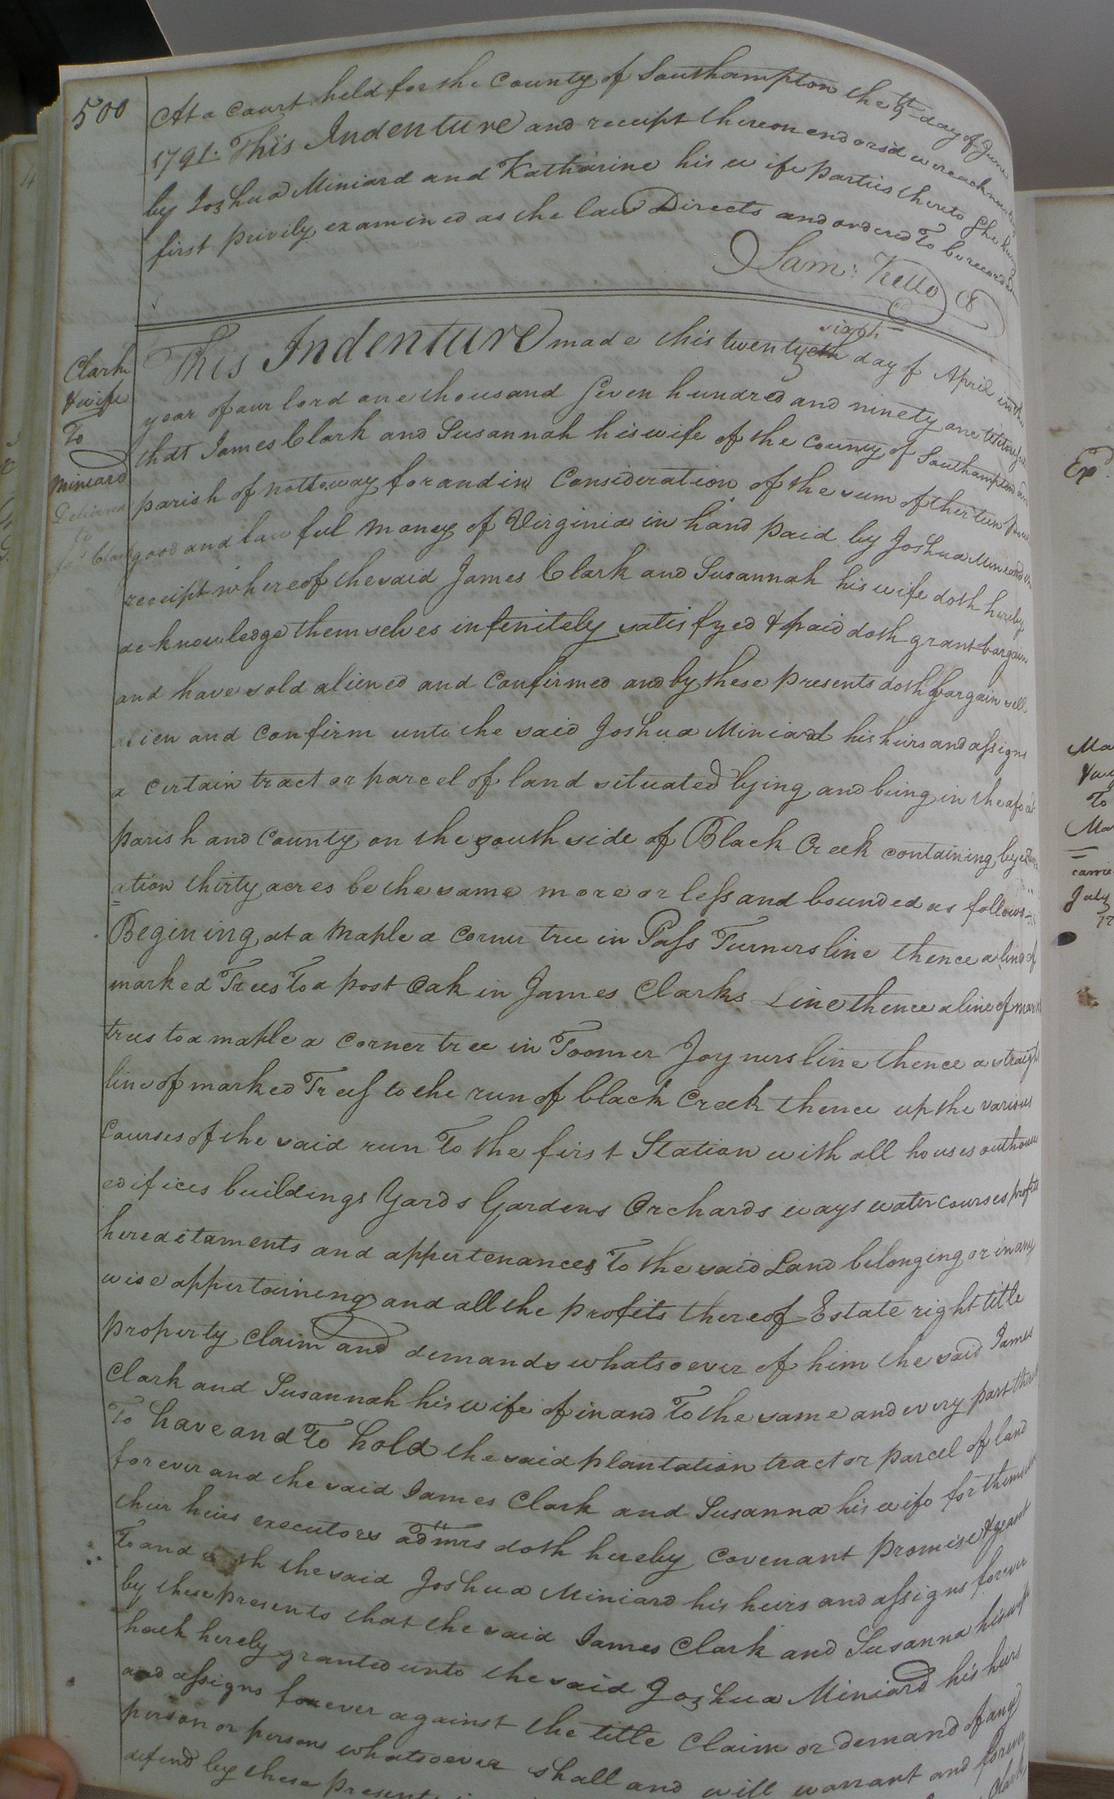 500
At a Court held for the County of Southampton the 9th day of June
1791. This Indenture and receipt thereon endorsd were
by Joshua Miniard and Katharine his wife parties thereto She being
first privily examined as the law Directs and ordered To be recorded
Sam: Kello
Clark
& wife
To
Miniard
This Indenture made this twenty sixth day of April in the
year of our lord one thousand Seven hundred and ninety one
that James Clark and Susannah his wife of the County of Southampton and
parish of nottoway for and in Consideration of the sum of thirteen
good and lawful money of Virginia in hand paid by Joshua Miniard
receipt whereof the said James Clark and Susannah his wife doth hereby
acknowledge themselves infinitely satisfyed & paid doth grant bargain
and have sold aliened and Confirmed and by these presents doth bargain sell
alien and confirm unto the said Joshua Miniard his heirs and assigns
a certain tract or parcel of land situated lying and being in the
parish and County on the south side of Black Creek containing by
ation thirty acres be the same more or less and bounded as follows
Begining at a maple a corner tree in Pass Turners line thence a line of
marked Trees To a post Oak in James Clarks Line thence a line of
trees to a maple a corner tree in Toomer Joyners line thence a straight
line of marked Trees to the run of black Creek thence up the various
Courses of the said run To the first Station with all houses
edifices buildings Yards Gardens Orchards ways water courses profits
hereditaments and appertenances To the said Land belonging or in any
wise appertaining and all the profits thereof Estate right title
property claim and demands whatsoever of him the said James
Clark and Susannah his wife of in and To the same and every part
To have and To hold the said plantation tract or parcel of land
forever and the said James Clark and Susanna his wife for themselves
their heirs executors admrs doth hereby Covenant promise & grant
To and the said Joshua Miniard his heirs and assigns forever
by these presents that the said James Clark and Susanna his wife
hath hereby granted unto the said Joshua Miniard his heirs
and assigns forever against the title Claim or demand of any
person or persons whatsoever shall and will warrant and forever
defend by these presents
Exd
To
July